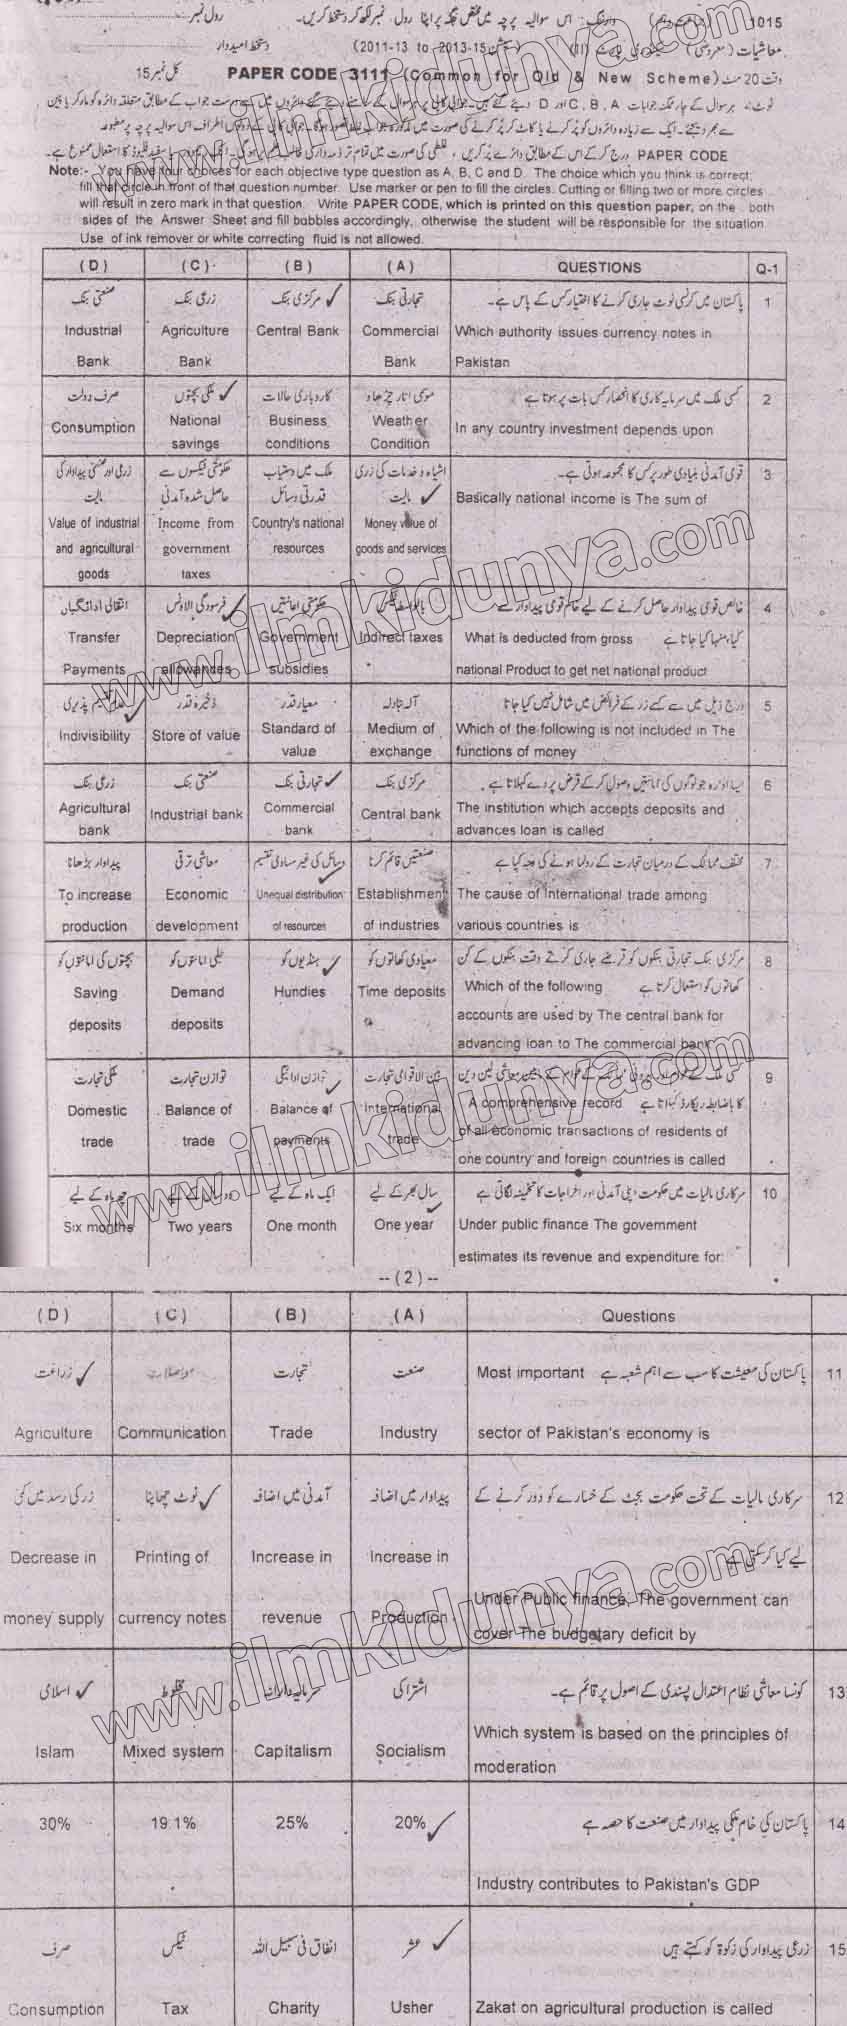 1015 (جماعت دہم) وارننگ: اس سوالیہ پرچہ میں مختص جگہ پر اپنا رول نمبر لکھ کر دستخط کریں۔ رول نمبر
معاشیات (معروضی) پارٹ (II) (سیشن 15-2013 to 2011-13) دستخط امیدوار
وقت 20 منٹ PAPER CODE 3111 (Common for Old & New Scheme) کل نمبر 15
نوٹ: ہر سوال کے چار ممکنہ جوابات A , B , C اور D دیئے گئے ہیں۔
PAPER CODE درج کر کے اس کے مطابق دائرے پُر کریں، غلطی کی صورت میں تمام تر ذمہ داری طالب علم پر ہو گی۔ کا استعمال ممنوع ہے۔
Note:- You have four choices for each objective type question as A, B, C and D. The choice which you think is correct;
fill that circle in front of that question number. Use marker or pen to fill the circles. Cutting or filling two or more circles
will result in zero mark in that question. Write PAPER CODE, which is printed on this question paper, on the both
sides of the Answer Sheet and fill bubbles accordingly, otherwise the student will be responsible for the situation.
Use of ink remover or white correcting fluid is not allowed.
(D) (C) (B) (A) QUESTIONS Q-1
صنعتی بنک زرعی بنک مرکزی بنک تجارتی بنک پاکستان میں کرنسی نوٹ جاری کرنے کا اختیار کس کے پاس ہے۔ 1
Industrial Agriculture Central Bank Commercial Which authority issues currency notes in
Bank Bank Bank Pakistan
صرف دولت ملکی بچتوں کاروباری حالات موسمی اتار چڑھاؤ کسی ملک میں سرمایہ کاری کا انحصار کس بات پر ہوتا ہے 2
Consumption National Business Weather In any country investment depends upon
savings conditions Condition
زرعی اور صنعتی پیداوار کی حکومتی ٹیکسوں سے ملک میں دستیاب اشیاء و خدمات کی زری قومی آمدنی بنیادی طور پر کس کا مجموعہ ہوتی ہے۔ 3
مالیت حاصل شدہ آمدنی قدرتی وسائل مالیت Basically national income is The sum of
Value of industrial Income from Country's national Money value of
and agricultural government resources goods and services
goods taxes
انتقالی ادائیگیاں فرسودگی الاؤنس حکومتی اعانتیں بالواسطہ ٹیکس خالص قومی پیداوار حاصل کرنے کے لیے خام قومی پیداوار سے 4
Transfer Depreciation Government Indirect taxes کیا منہا کیا جاتا ہے What is deducted from gross
Payments allowances subsidies national Product to get net national product
عدم تقسیم پذیری ذخیرہ قدر معیار قدر آلہ مبادلہ درج ذیل میں سے کسے زر کے فرائض میں شامل نہیں کیا جاتا 5
Indivisibility Store of value Standard of Medium of Which of the following is not included in The
value exchange functions of money
زرعی بنک صنعتی بنک تجارتی بنک مرکزی بنک ایسا ادارہ جو لوگوں کی امانتیں وصول کر کے قرض پر دے کہلاتا ہے۔ 6
Agricultural Industrial bank Commercial Central bank The institution which accepts deposits and
bank bank advances loan is called
پیداوار بڑھانا معاشی ترقی وسائل کی غیر مساوی تقسیم صنعتیں قائم کرنا مختلف ممالک کے درمیان تجارت کے رونما ہونے کی وجہ کیا ہے 7
To increase Economic Unequal distribution Establishment The cause of International trade among
production development of resources of industries various countries is
بچتوں کی امانتوں کو طلبی امانتوں کو ہنڈیوں کو معیادی کھاتوں کو مرکزی بنک تجارتی بنکوں کو قرضے جاری کرتے وقت بنکوں کے کن 8
Saving Demand Hundies Time deposits کھاتوں کو استعمال کرتا ہے Which of the following
deposits deposits accounts are used by The central bank for
advancing loan to The commercial bank
ملکی تجارت توازن تجارت توازن ادائیگی بین الاقوامی تجارت کسی ملک کے عوام اور بیرونی ممالک کے عوام کے مابین معاشی لین دین 9
Domestic Balance of Balance of International کا باضابطہ ریکارڈ کہلاتا ہے A comprehensive record
trade trade payments trade of all economic transactions of residents of
one country and foreign countries is called
چھ ماہ کے لیے دو سال کے لیے ایک ماہ کے لیے سال بھر کے لیے سرکاری مالیات میں حکومت اپنی آمدنی اور اخراجات کا تخمینہ لگاتی ہے 10
Six months Two years One month One year Under public finance The government
estimates its revenue and expenditure for:
--(2)--
(D) (C) (B) (A) Questions
زراعت مواصلات تجارت صنعت پاکستان کی معیشت کا سب سے اہم شعبہ ہے Most important 11
Agriculture Communication Trade Industry sector of Pakistan's economy is
زر کی رسد میں کمی نوٹ چھاپنا آمدنی میں اضافہ پیداوار میں اضافہ سرکاری مالیات کے تحت حکومت بجٹ کے خسارے کو دور کرنے کے 12
لیے کیا کر سکتی ہے
Decrease in Printing of Increase in Increase in Under Public finance, The government can
money supply currency notes revenue Production cover The budgetary deficit by
اسلامی مخلوط سرمایہ دارانہ اشتراکی کونسا معاشی نظام اعتدال پسندی کے اصول پر قائم ہے۔ 13
Islam Mixed system Capitalism Socialism Which system is based on the principles of
moderation
30% 19.1% 25% 20% پاکستان کی خام ملکی پیداوار میں صنعت کا حصہ ہے 14
Industry contributes to Pakistan's GDP
صرف ٹیکس انفاق فی سبیل اللہ عشر زرعی پیداوار کی زکوٰۃ کو کہتے ہیں 15
Consumption Tax Charity Usher Zakat on agricultural production is called
www.ilmkidunya.com
www.ilmkidunya.com
www.ilmkidunya.com
www.ilmkidunya.com